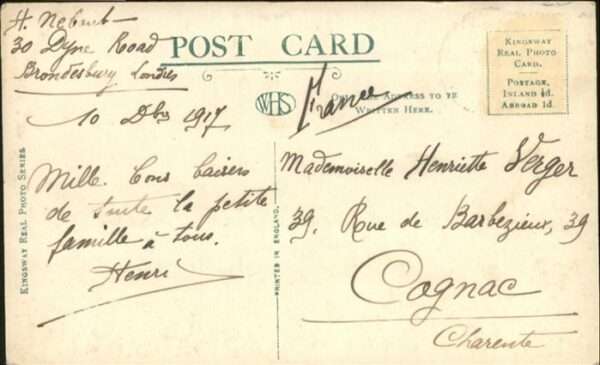 H.
30 Dyne Road
Brondesbury Londres
10 Dbre 1917
POST CARD
WHS
France
ONLY THE ADDRESS TO BE
WRITTEN HERE.
KINGSWAY
REAL PHOTO
CARD.
POSTAGE,
INLAND ½d.
ABROAD 1d.
Mille bons baisers
de toute la petite
famille à tous.
Henri
Mademoiselle Henriette Verger
39, Rue de Barbezieux, 39
Cognac
Charente
KINGSWAY REAL PHOTO SERIES
PRINTED IN ENGLAND.